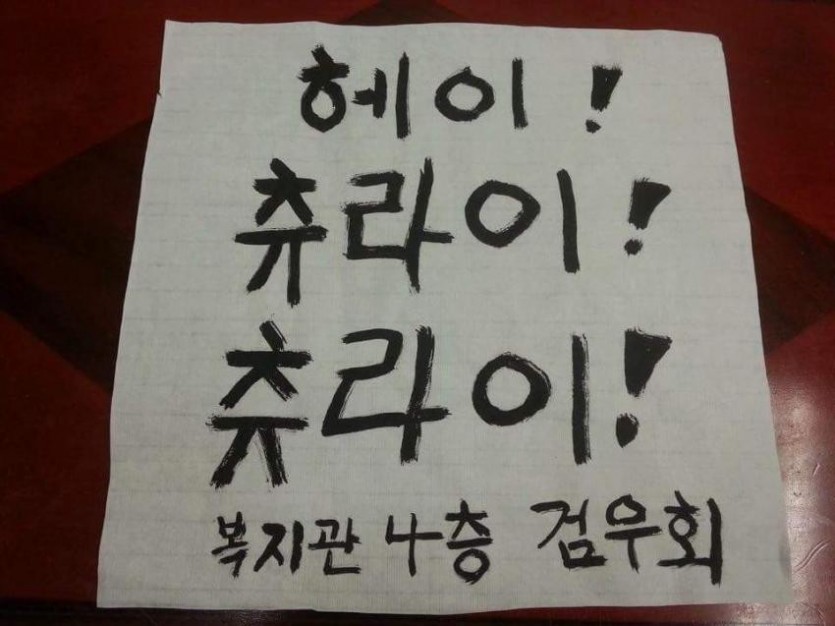 헤이!
츄라이!
츄라이!
복지관 4층 검우회